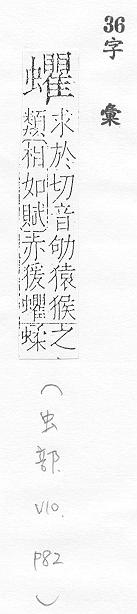 36
字彙
蠷
求於切音劬猿猴之
類相如賦赤猨蠷蝚
(虫部. V10. P82)